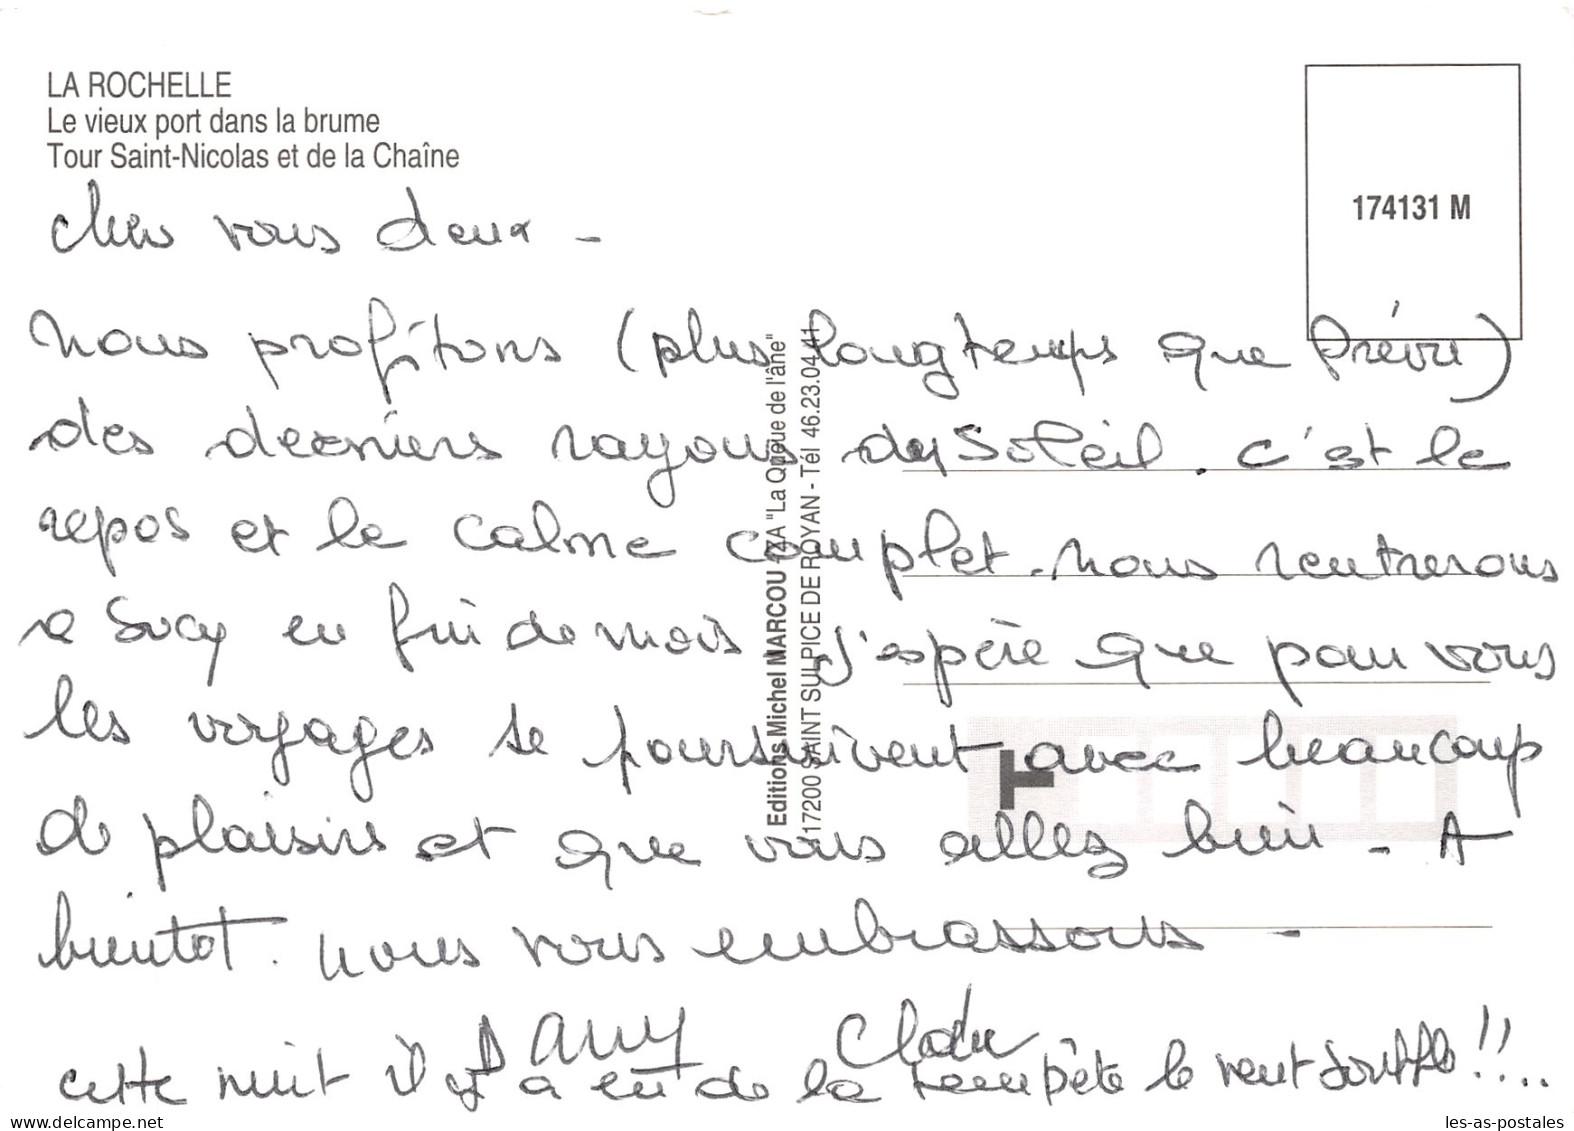 LA ROCHELLE
Le vieux port dans la brume
Tour Saint-Nicolas et de la Chaîne
174131 M
Chers vous deux -
Nous profitons (plus longtemps que prévu)
des derniers rayons du Soleil. C'est le
repos et le calme complet. Nous rentrerons
a Sucy en fin de mois J'espère que pour vous
les voyages se poursuivent avec beaucoup
de plaisirs et que vous allez bien - A
bientot. Nous vous embrassons -
cette nuit il y a eu de la tempête le vent souffle!!...
Editions Michel MARCOU "La Queue de l'âne"
17200 SAINT SULPICE DE ROYAN - Tél 46.23.04.41
les-as-postales